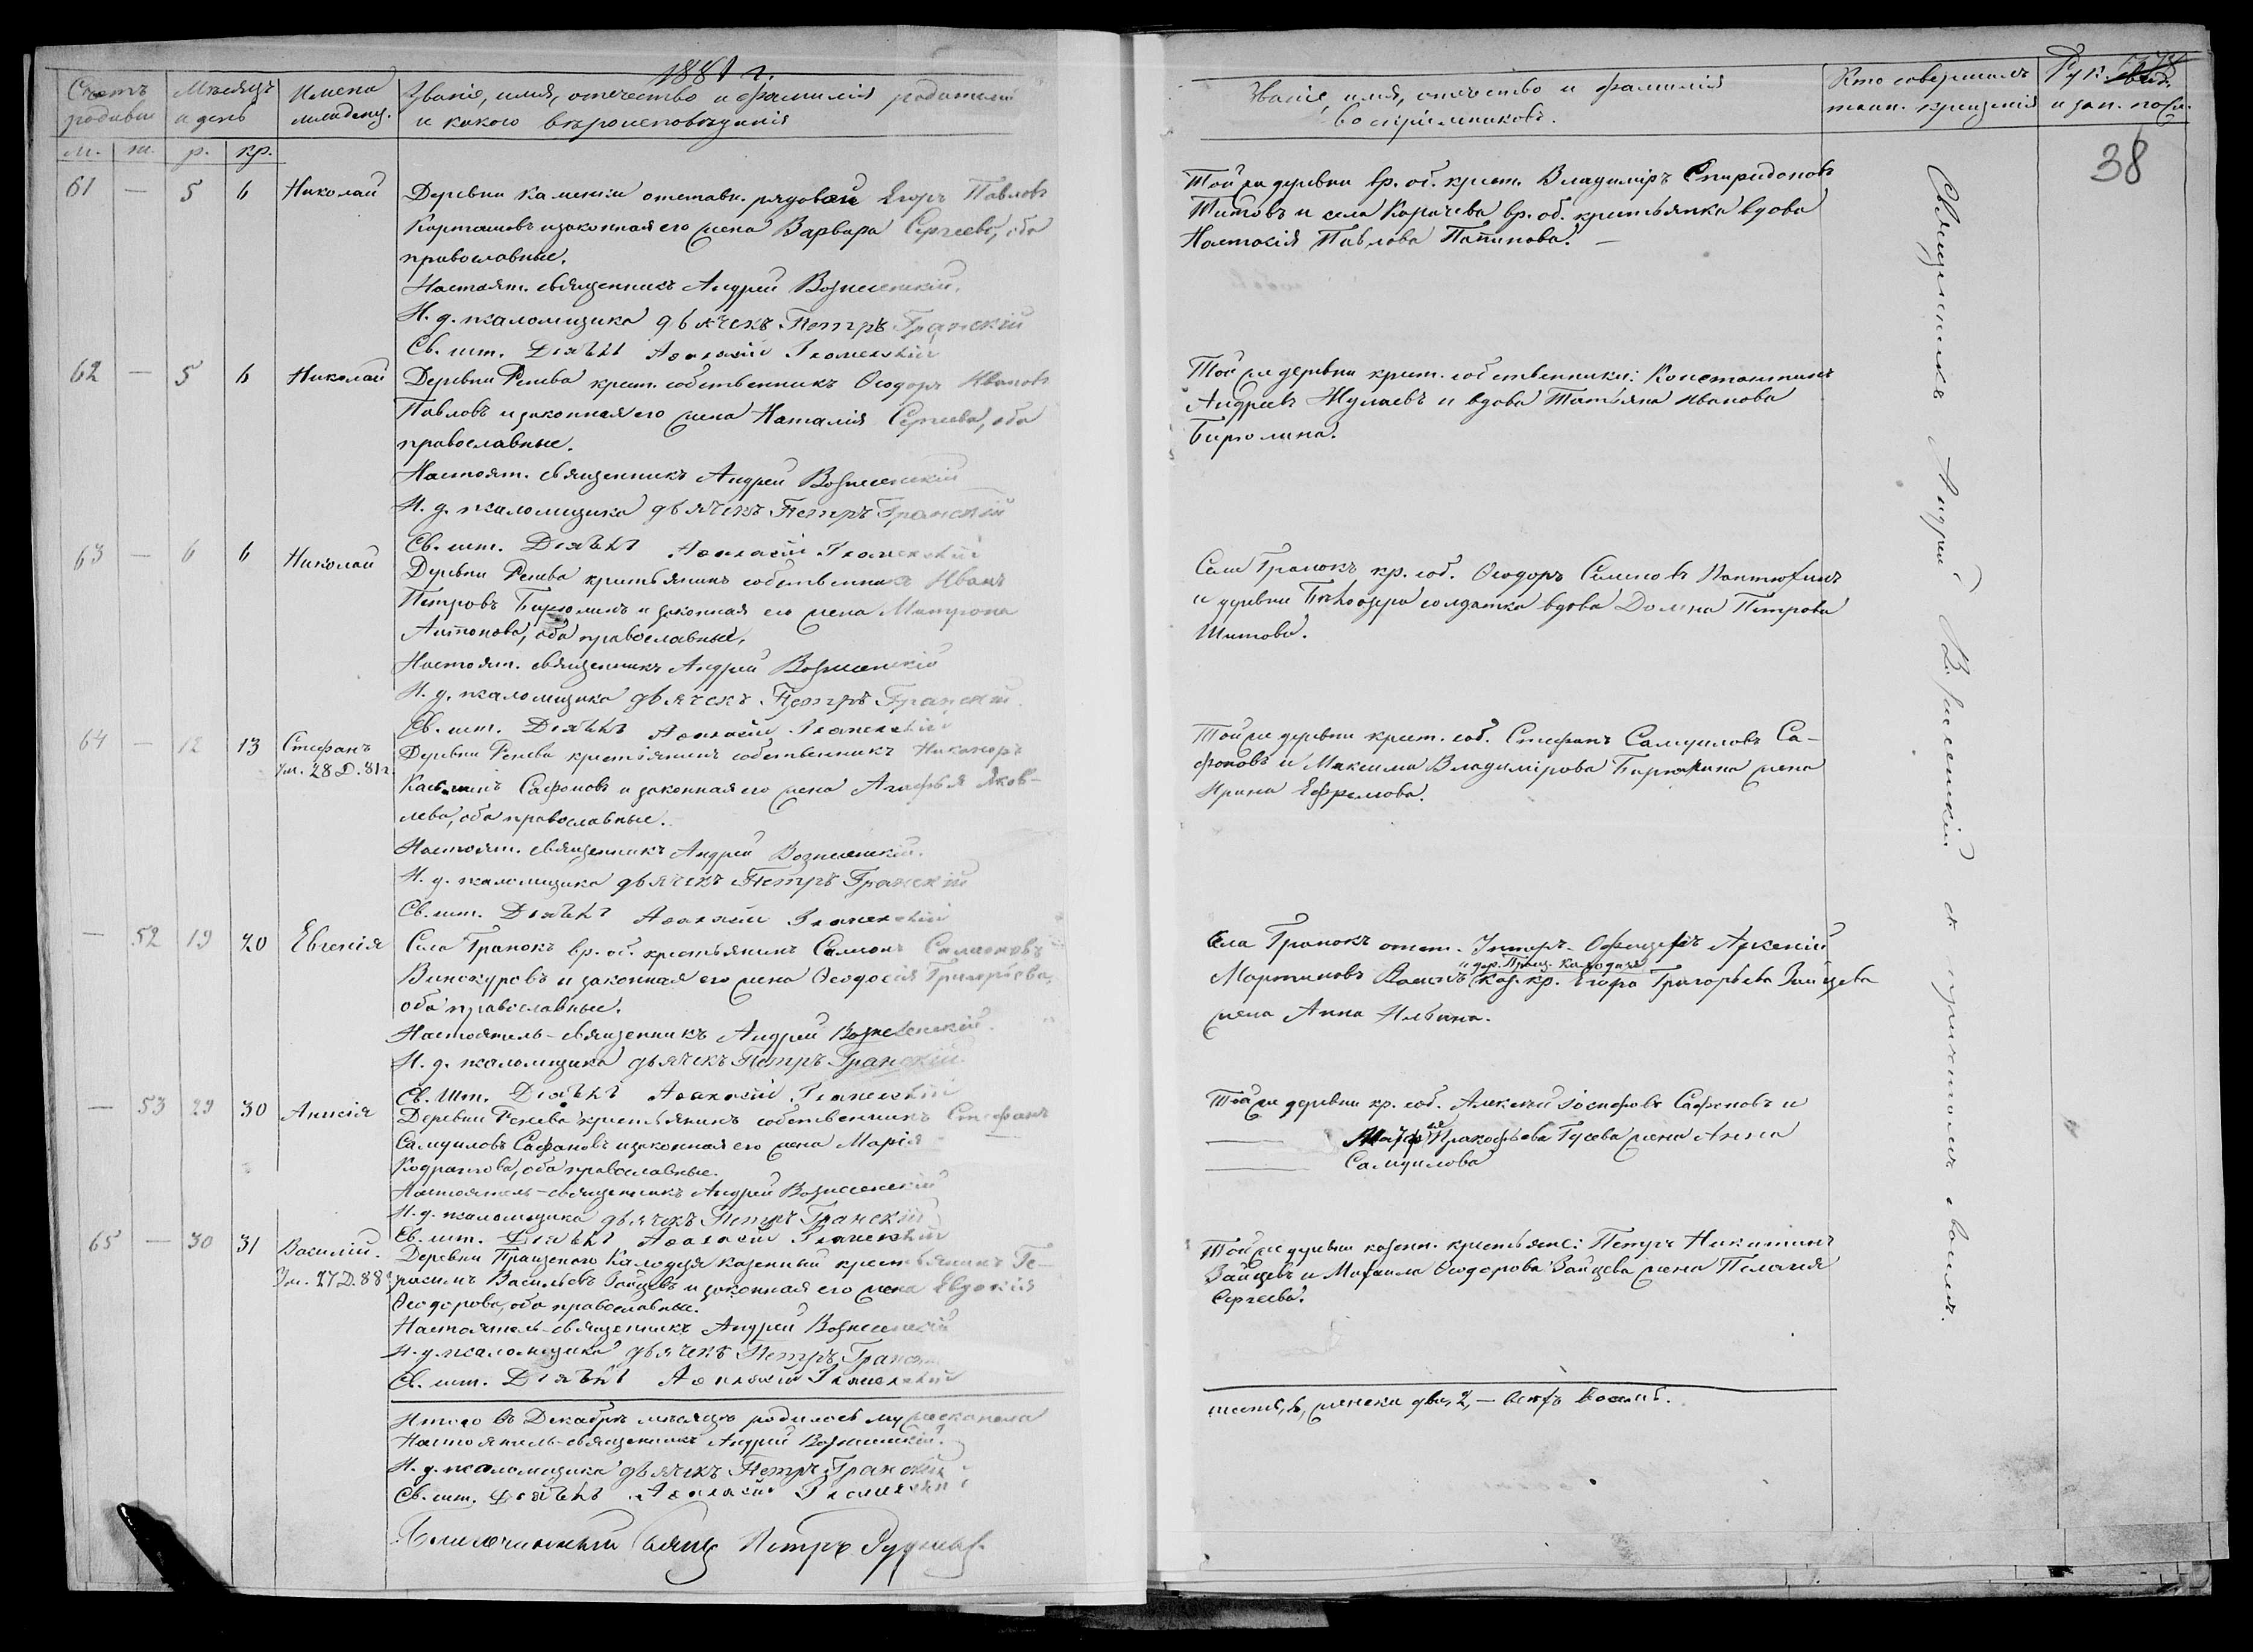 1881 г.
Счетъ родивш.
Мѣсяцъ и день
Имена младенц.
Званіе, имя, отечество и фамилія родителей
и какого вѣроисповѣданія
м. ж. р. кр.
61 — 5 6 Николай
Деревни Каменки отставн. рядовой Егоръ Павловъ
Карташовъ и законная его жена Варвара Сергеева, оба
православные.
Настоят. священникъ Андрей Вознесенскій.
И. д. псаломщика дьячекъ Петръ Гранскій
Св. шт. Діяконъ
62 — 5 6 Николай
Деревни Ренева крест. собственникъ Ѳеодоръ Ивановъ
Павловъ и законная его жена Наталія Сергеева, оба
православные.
Настоят. священникъ Андрей Вознесенскій
И. д. псаломщика дьячекъ Петръ Гранскій
Св. шт. Діяконъ
63 — 6 6 Николай
Деревни Ренева крестьянинъ собственникъ Иванъ
Петровъ Бирюлинъ и законная его жена Митрона
Антонова, оба православные.
Настоят. священникъ Андрей Вознесенскій
И. д. псаломщика дьячекъ Петръ Гранскій
Св. шт. Діяконъ
64 — 12 13 Стефанъ
Ум. 28 Д. 81 г.
Деревни Ренева крестьянинъ собственникъ Никаноръ
Касьминъ Сафоновъ и законная его жена Агафья Яков-
лева, оба православные.
Настоят. священникъ Андрей Вознесенскій.
И. д. псаломщика дьячекъ Петръ Гранскій
Св. шт. Діяконъ
— 52 19 20 Евгенія
Села Гранокъ вр. об. крестьянинъ Симеонъ Симеоновъ
Винокуровъ и законная его жена Ѳеодосія Григорьева,
оба православные.
Настоятель-священникъ Андрей Вознесенскій.
И. д. псаломщика дьячекъ Петръ Гранскій
Св. шт. Діяконъ
— 53 29 30 Анисія
Деревни Ренева крестьянинъ собственникъ Стефанъ
Самуиловъ Сафоновъ и законная его жена Марія
Кодратова, оба православные.
Настоятель-священникъ Андрей Вознесенскій
И. д. псаломщика дьячекъ Петръ Гранскій
Св. шт. Діяконъ
65 — 30 31 Василій.
Ум. 27 Д. 88 г.
Деревни Пращенаго Калодезя казенный крестьянинъ Ге-
расимъ Васильевъ Зайцевъ и законная его жена Евдокія
Ѳеодорова, оба православные.
Настоятель-священникъ Андрей Вознесенскій
И. д. псаломщика дьячекъ Петръ Гранскій
Св. шт. Діяконъ
Итого въ Декабрѣ мѣсяцѣ родилось мужескаго пола
Настоятель-священникъ Андрей Вознесенскій.
И. д. псаломщика дьячекъ Петръ Гранскій
Св. шт. Діяконъ
Благочинный Свящ. Петръ Рудневъ.
Званіе, имя, отечество и фамилія
воспріемниковъ.
Кто совершалъ
таин. крещенія
Рук.
и зап. посл.
38
Той же деревни вр. об. крест. Владиміръ Спиридоновъ
Титовъ и села Карачева вр. об. крестьянка вдова
Настасія Павлова Папинова. —
Той же деревни крест. собственники: Константинъ
Андреевъ Жулаевъ и вдова Татьяна Иванова
Бирюлина.
Села Гранокъ кр. соб. Ѳеодоръ Симеоновъ Пантюхинъ
и деревни Бѣлоозера солдатка вдова Домна Петрова
Шитова.
Той же деревни крест. соб. Стефанъ Самуиловъ Са-
фоновъ и Максима Владимірова Бирюлина жена
Ирина Ефремова.
Села Гранокъ отст. Унтеръ-Офицеръ Арсеній
и дер. Пращ. Калодезя
Мартиновъ каз. кр. Егора Григорьева Зайцева
жена Анна Ильина.
Той же деревни кр. соб. Алексѣй Іосифовъ Сафоновъ и
Прокофьева Гусева жена Анна
Самуилова
Той же деревни казенн. крестьяне: Петръ Никитинъ
Зайцевъ и Михаила Ѳеодорова Зайцева жена Пелагея
Сергеева.
шесть, 6, женска два, 2, — всехъ восемь.
Священникъ Андрей Вознесенскій съ причтомъ своимъ.